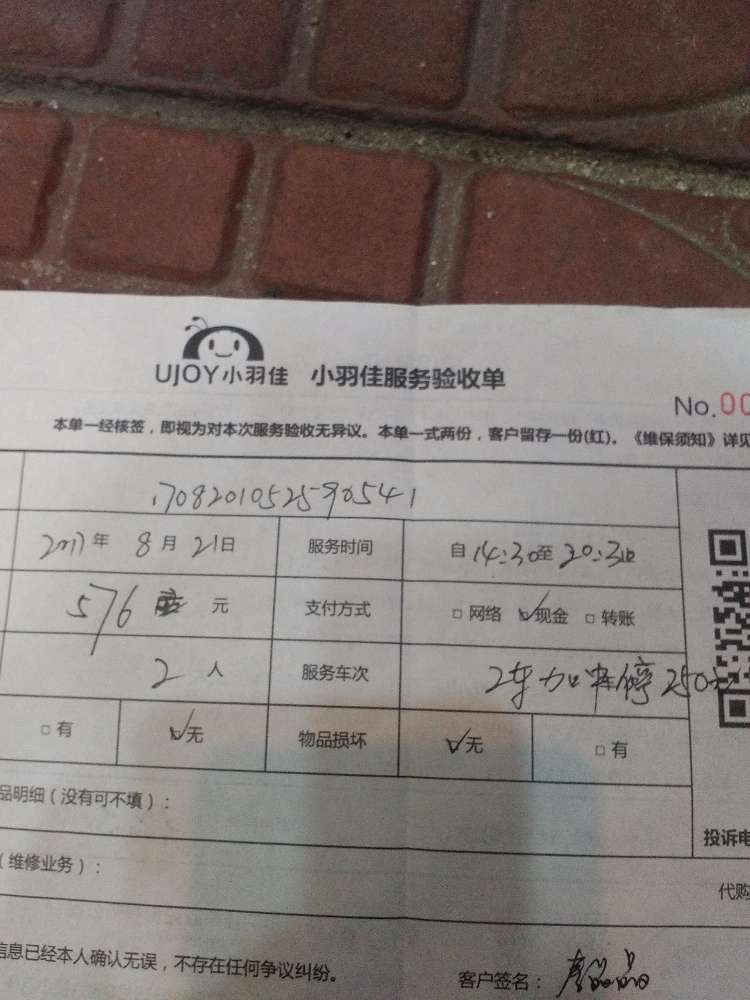 UJOY小羽佳 小羽佳服务验收单
No.00
本单一经核签，即视为对本次服务验收无异议。本单一式两份，客户留存一份(红)。《维保须知》详见
1708201052590541
2017年 8月21日 服务时间 自14:30至20:30
576 元 支付方式 网络 现金 转账
2人 服务车次 2车 加 停 250
有 无 物品损坏 无 有
品明细（没有可不填）：
投诉电
（维修业务）：
代购
信息已经本人确认无误，不存在任何争议纠纷。
客户签名： 晶晶